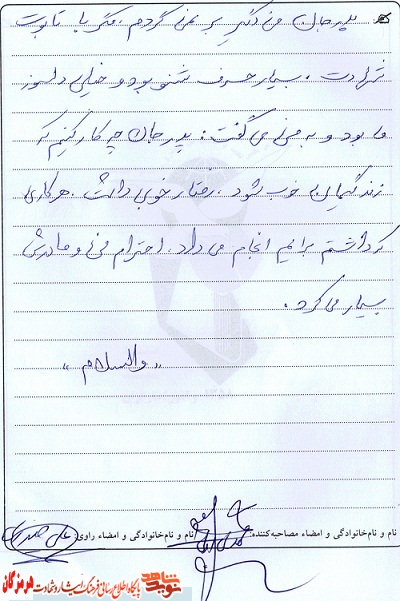 پدر جان من دیگر بر نمی گردم، مگر با تابوت
شهادت. بسیار حرف شنو بود و خیلی دلسوز
ما بود و به من می گفت: پدر جان چه کار کنیم که
زندگیمان خوب شود. رفتار خوبی داشت. هر کاری
داشتم برایم انجام می داد. احترام من و مادرش
بسیار می کرد.
«والسلام»
نام و نام‌خانوادگی و امضاء مصاحبه‌کننده: نام و نام‌خانوادگی و امضاء راوی: علی
نوید شاهد پایگاه اطلاع رسانی فرهنگ ایثار و شهادت هرمزگان